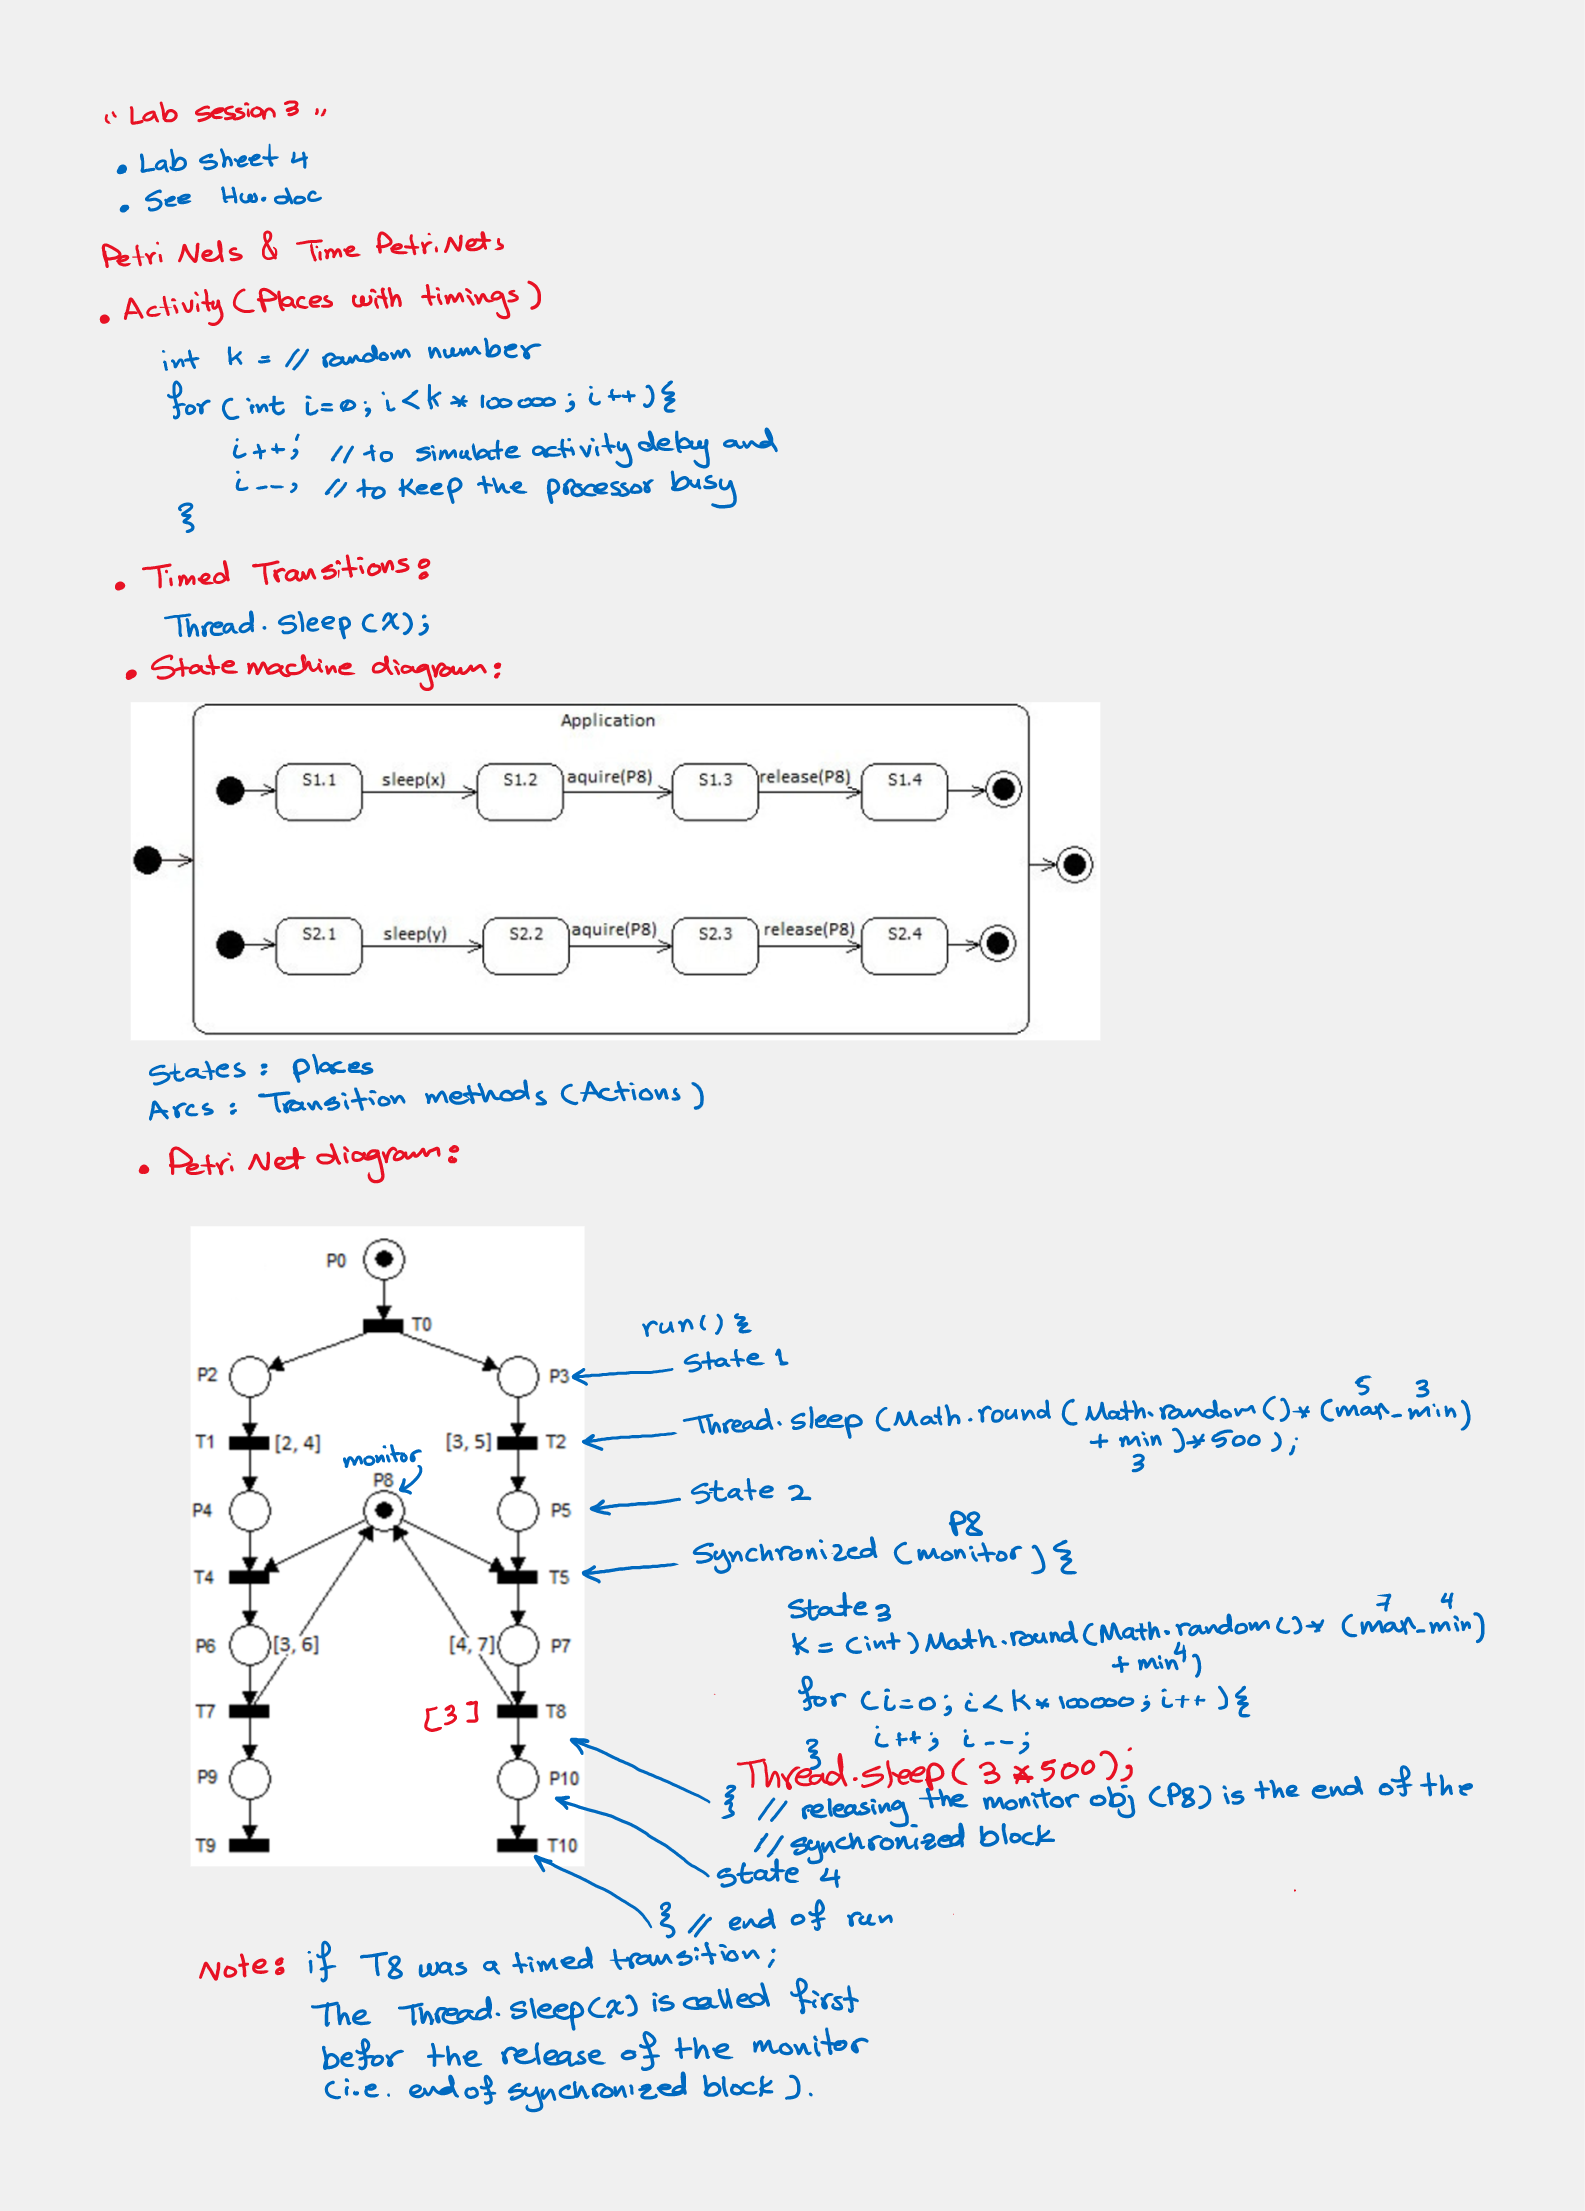 “ Lab session 3 „
• Lab sheet 4
• See Hw.doc
Petri Nels & Time Petri Nets
• Activity (Places with timings)
int k = // random number
for (int i=0; i<k * 100000; i++){
i++; // to simulate activity delay and
i--; // to keep the processor busy
}
• Timed Transitions:
Thread.sleep(x);
• State machine diagram:
Application
S1.1 sleep(x) S1.2 aquire(P8) S1.3 release(P8) S1.4
S2.1 sleep(y) S2.2 aquire(P8) S2.3 release(P8) S2.4
States : places
Arcs : Transition methods (Actions)
• Petri Net diagram:
P0
T0
run() {
P2 P3 State 1
5 3
T1 [2, 4] [3, 5] T2 Thread.sleep (Math.round (Math.random()* (max-min)
+ min)*500);
3
monitor
P8
P4 P5 State 2
P8
T4 T5 Synchronized (monitor) {
State 3
7 4
P6 [3, 6] [4, 7] P7 k = (int) Math.round(Math.random()* (max-min)
+ min 4)
T7 [3] T8 for (i=0; i<k*100000; i++){
i++; i--;
}
P9 P10 Thread.sleep(3*500);
} // releasing the monitor obj (P8) is the end of the
T9 T10 // synchronized block
State 4
} // end of run
Note: if T8 was a timed transition;
The Thread.sleep(x) is called first
befor the release of the monitor
(i.e. end of synchronized block).